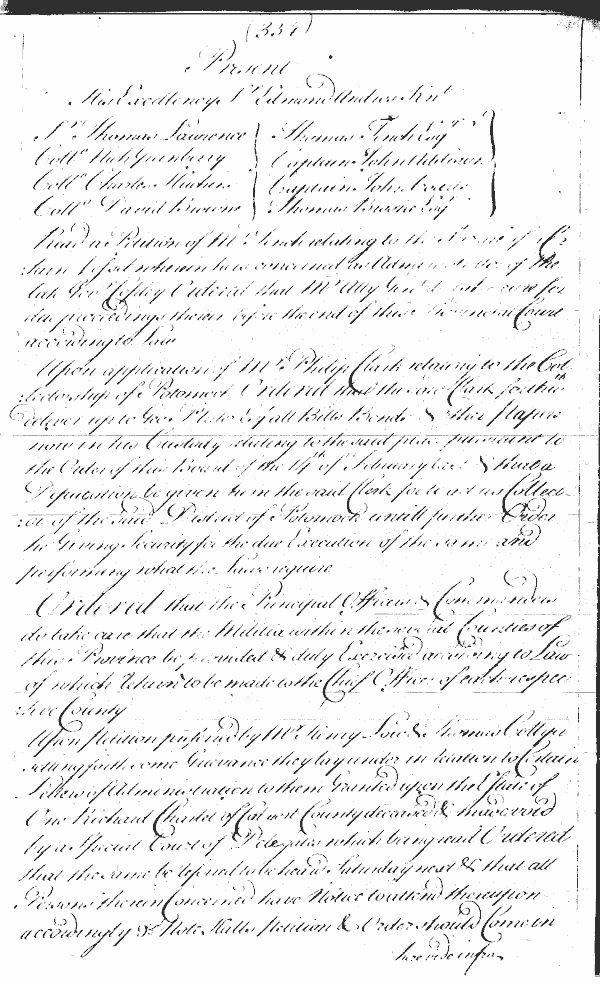 (334)
Present
His Excellency Sr Edmond Andros Knt
Sr Thomas Lawrence Thomas Tench Esqr
Collo Nich Greenberry Captain John Addison
Collo Charles Hutchins Captain John
Collo David Browne Thomas Brooke Esqr
Read a Petition of Mr Tench relating to the
wherein he is concerned as Administrator of the
late Govr Copley Ordered that Mr Atty Genl
due proceedings therein before the end of this Provincial Court
according to Law
Upon application of Mr Philip Clark relating to the Col-
lectorship of Potomock Ordered that the said Clark forthth
deliver up to Geo Esqr all Bills Bonds & other Papers
now in his Custody relating to the said place pursuant to
the Order of this Board of the 14th of February last & that a
Deputation be given him the said Clark for to act as Collect-
or of the said District of Potomock untill further Order
he Giving Security for the due Execution of the same and
performing what the Laws require
Ordered that the Principal Officers & Commanders
do take care that the Militia within the several Counties of
this Province be provided & duly Exercised according to Law
of which Return to be made to the Chief Officer of each respec-
tive County
Upon Petition preferred by Mr Henry Low & Thomas Collyer
setting forth some Grievance they lay under in relation to Certain
Letters of Administration to them Granted upon the Estate of
One Richard Charlet of Calvert County deceased & made void
by a Special Court of Delegates which being read Ordered
that the same be referred to be heard Saturday next & that all
Persons therein Concerned have Notice to attend thereupon
accordingly Note Halls Petition & Order should Come in
here vide infra